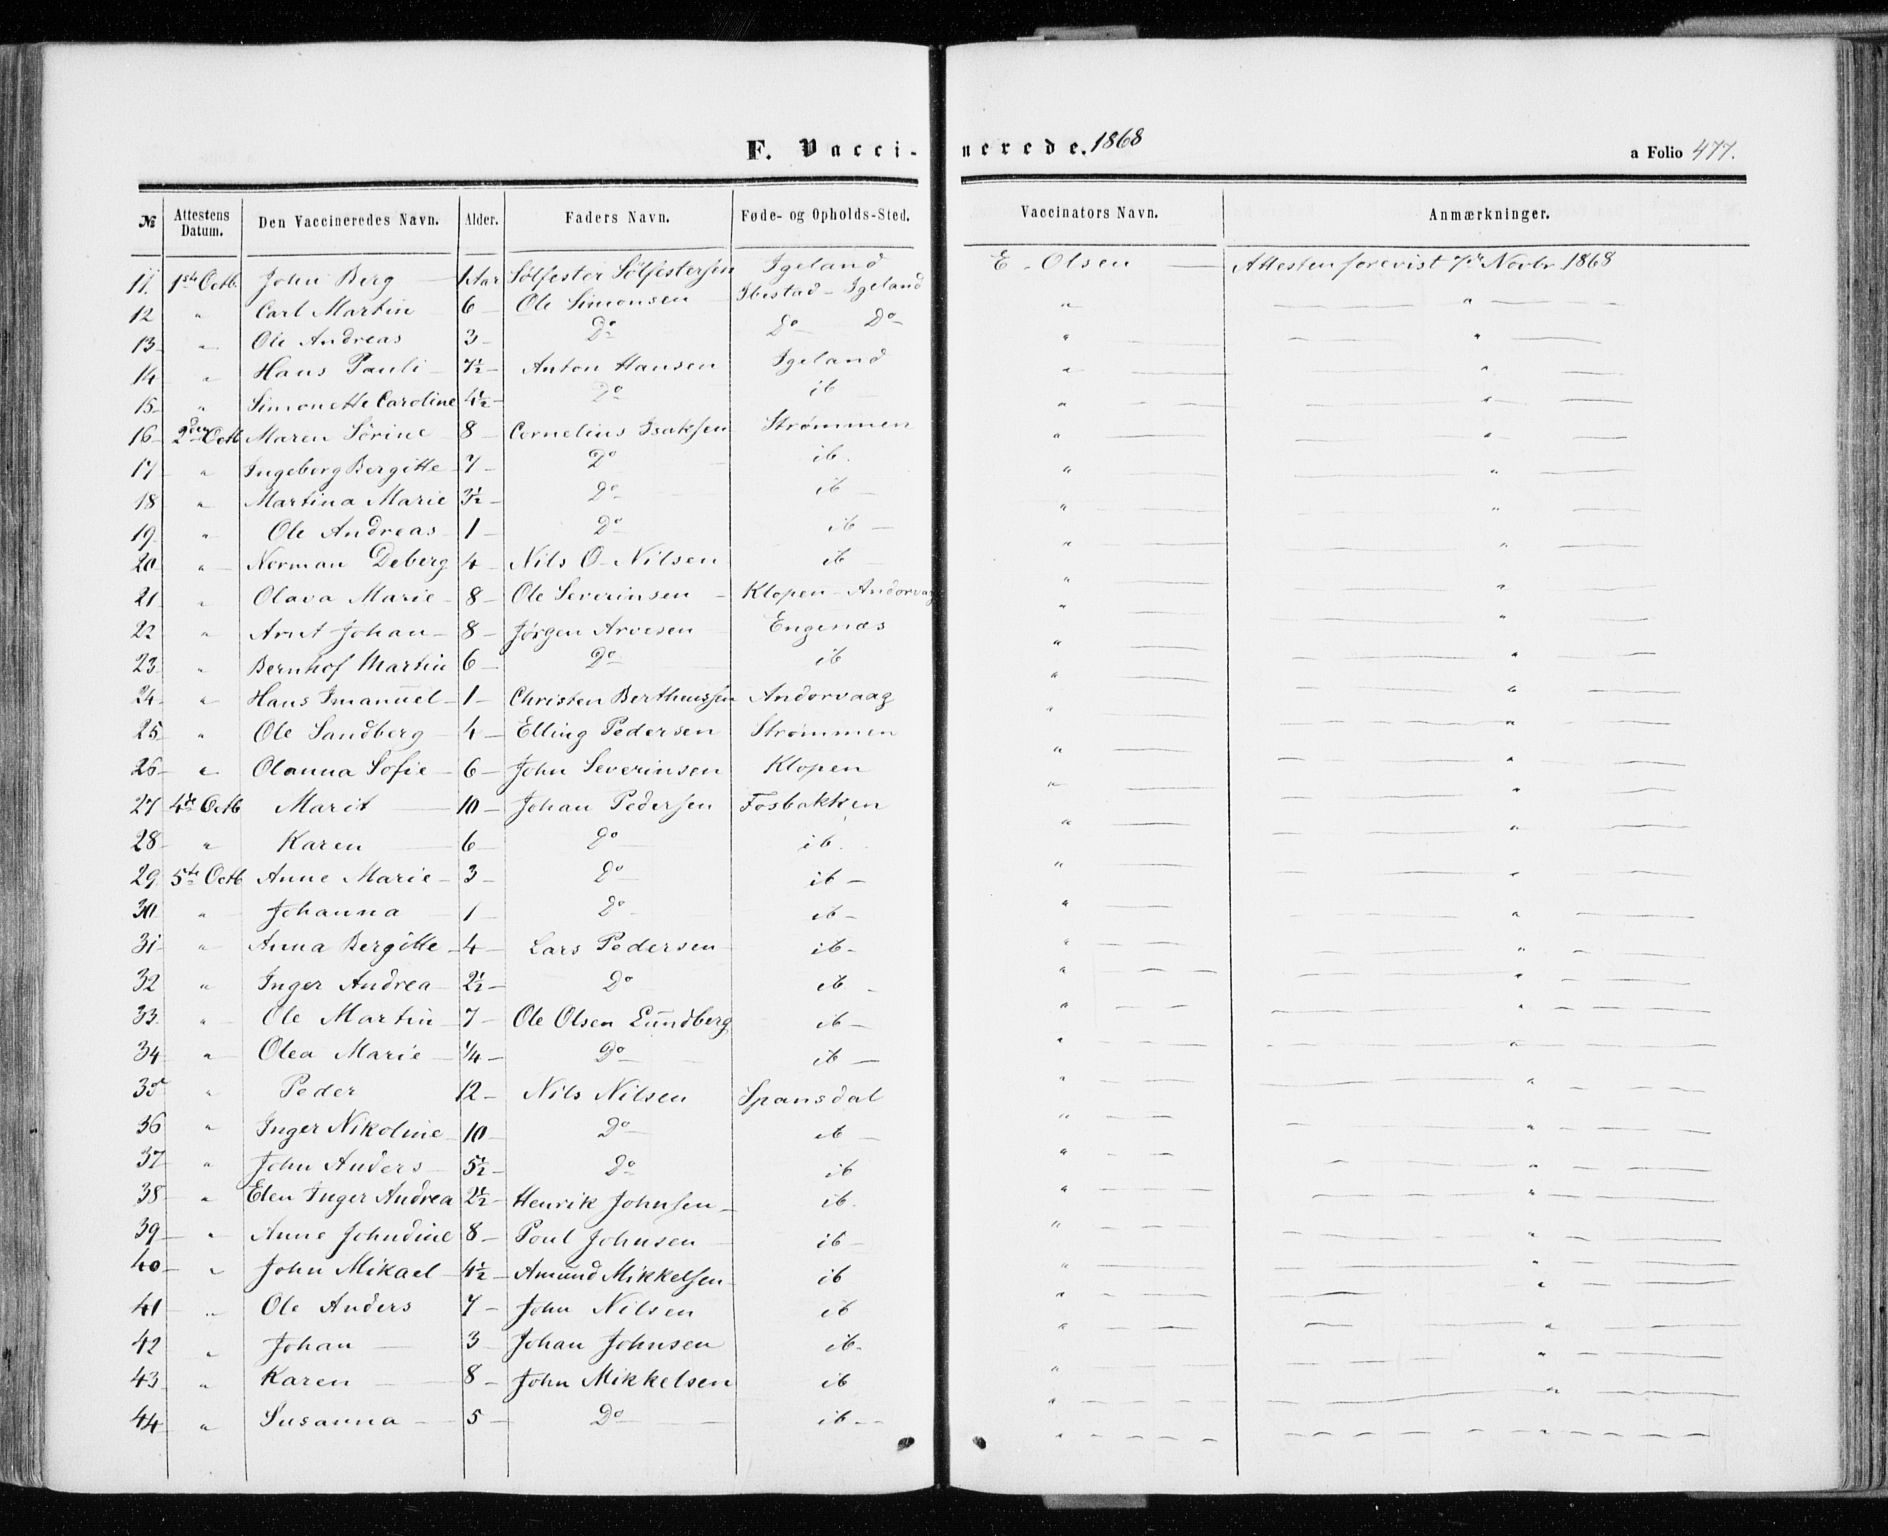 F. Vaccinerede. 1868
a Folio 477.
№ | Attestens Datum. | Den Vaccineredes Navn. | Alder. | Faders Navn. | Føde- og Opholds-Sted. | Vaccinators Navn. | Anmærkninger.
11. | 1ste Octb. | John Berg | 1 Aar | Sølfester Sølfestersen | Igeland | E. Olsen | Attesten forevist 7de Novbr 1868
12 | " | Carl Martin | 6 | Ole Simonsen | Ibestad - Igeland | " | "
13 | " | Ole Andreas | 3 | Do | Do Do | " | "
14 | " | Hans Pauli | 7½ | Anton Hansen | Igeland | " | "
15 | " | Simonette Caroline | 4½ | Do | ib | " | "
16 | 2den Octb | Maren Sørine | 8 | Cornelius Isaksen | Strømmen | " | "
17 | " | Ingeborg Bergitte | 7 | Do | ib. | " | "
18 | " | Martina Marie | 3½ | Do | ib | " | "
19 | " | Ole Andreas | 1 | Do | ib | " | "
20 | " | Norman Deberg | 4 | Nils O. Nilsen | ib | " | "
21 | " | Olava Marie | 8 | Ole Severinsen | Klopen - Andorvaag | " | "
22 | " | Arnt Johan | 8 | Jørgen Arvesen | Engenæs | " | "
23 | " | Bernhof Martin | 6 | Do | ib | " | "
24 | " | Hans Imanuel | 1 | Christen Beertheussen | Andorvaag | " | "
25 | " | Ole Sandberg | 4 | Elling Pedersen | Strømmen | " | "
26 | " | Olanna Sofie | 6 | John Severinsen | Klopen | " | "
27 | 4de Octb | Marit | 10 | Johan Pedersen | Fosbakken | " | "
28 | " | Karen | 6 | Do | ib. | " | "
29 | 5te Octb | Anne Marie | 3 | Do | ib | " | "
30 | " | Johanna | 1 | Do | ib | " | "
31 | " | Anna Bergitte | 4 | Lars Pedersen | ib | " | "
32 | " | Inger Andrea | 2½ | Do | ib | " | "
33 | " | Ole Martin | 7 | Ole Olsen Lundberg | ib | " | "
34 | " | Olea Marie | ¼ | Do | ib | " | "
35 | " | Peder | 12 | Nils Nilsen | Spansdal | " | "
36 | " | Inger Nikoline | 10 | Do | ib | " | "
37 | " | John Anders | 5½ | Do | ib | " | "
38 | " | Elen Inger Andrea | 2½ | Henrik Johnsen | ib. | " | "
39 | " | Anne Johndine | 8 | Poul Johnsen | ib | " | "
40 | " | John Mikael | 4½ | Amund Mikkelsen | ib | " | "
41 | " | Ole Anders | 7 | John Nilsen | ib | " | "
42 | " | Johan | 3 | Johan Johnsen | ib. | " | "
43 | " | Karen | 8 | John Mikkelsen | ib | " | "
44 | " | Susanna | 5 | Do | ib | " | "